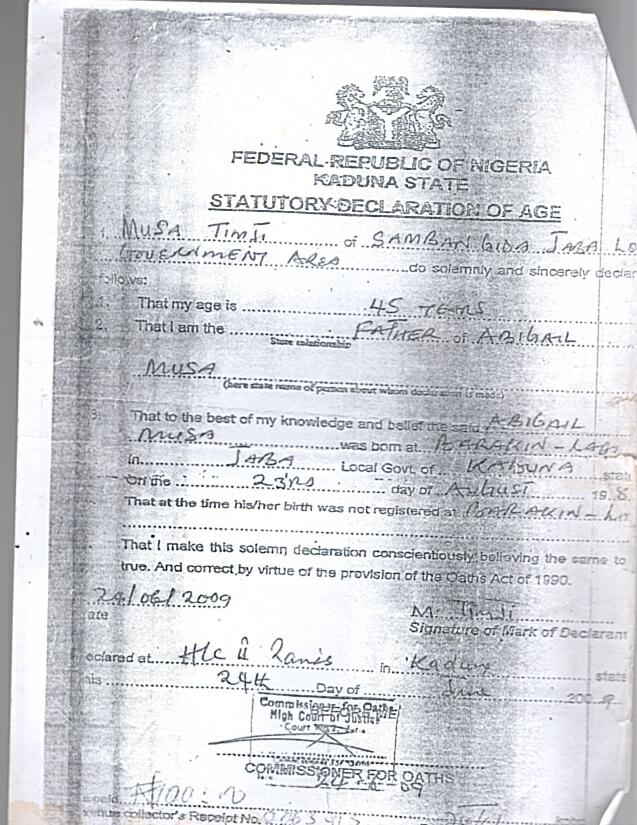 FEDERAL REPUBLIC OF NIGERIA
KADUNA STATE
STATUTORY DECLARATION OF AGE
I, MUSA TIMJI of SAMBAN GIDA JABA LO
GOVERNMENT AREA do solemnly and sincerely declar
follows:
1. That my age is 45 YEARS
2. That I am the FATHER of ABIGAIL
State relationship
MUSA
(here state name of person about whom declaration is made)
3. That to the best of my knowledge and belief the said ABIGAIL
MUSA was born at BARAKIN-LAGO
in JABA Local Govt. of KADUNA state
On the 23RD day of AUGUST 198
That at the time his/her birth was not registered at BARAKIN-
That I make this solemn declaration conscientiously believing the same to
true. And correct by virtue of the provision of the Oaths Act of 1990.
24/06/2009 M. TIMJI
ate Signature of Mark of Declarant
eclared at HC in Kaduna state
his 24th Day of June 2009
Commissioner for Oaths
High Court of Justice
Court
COMMISSIONER FOR OATHS
24-6-09
paid
venue collector's Receipt No.